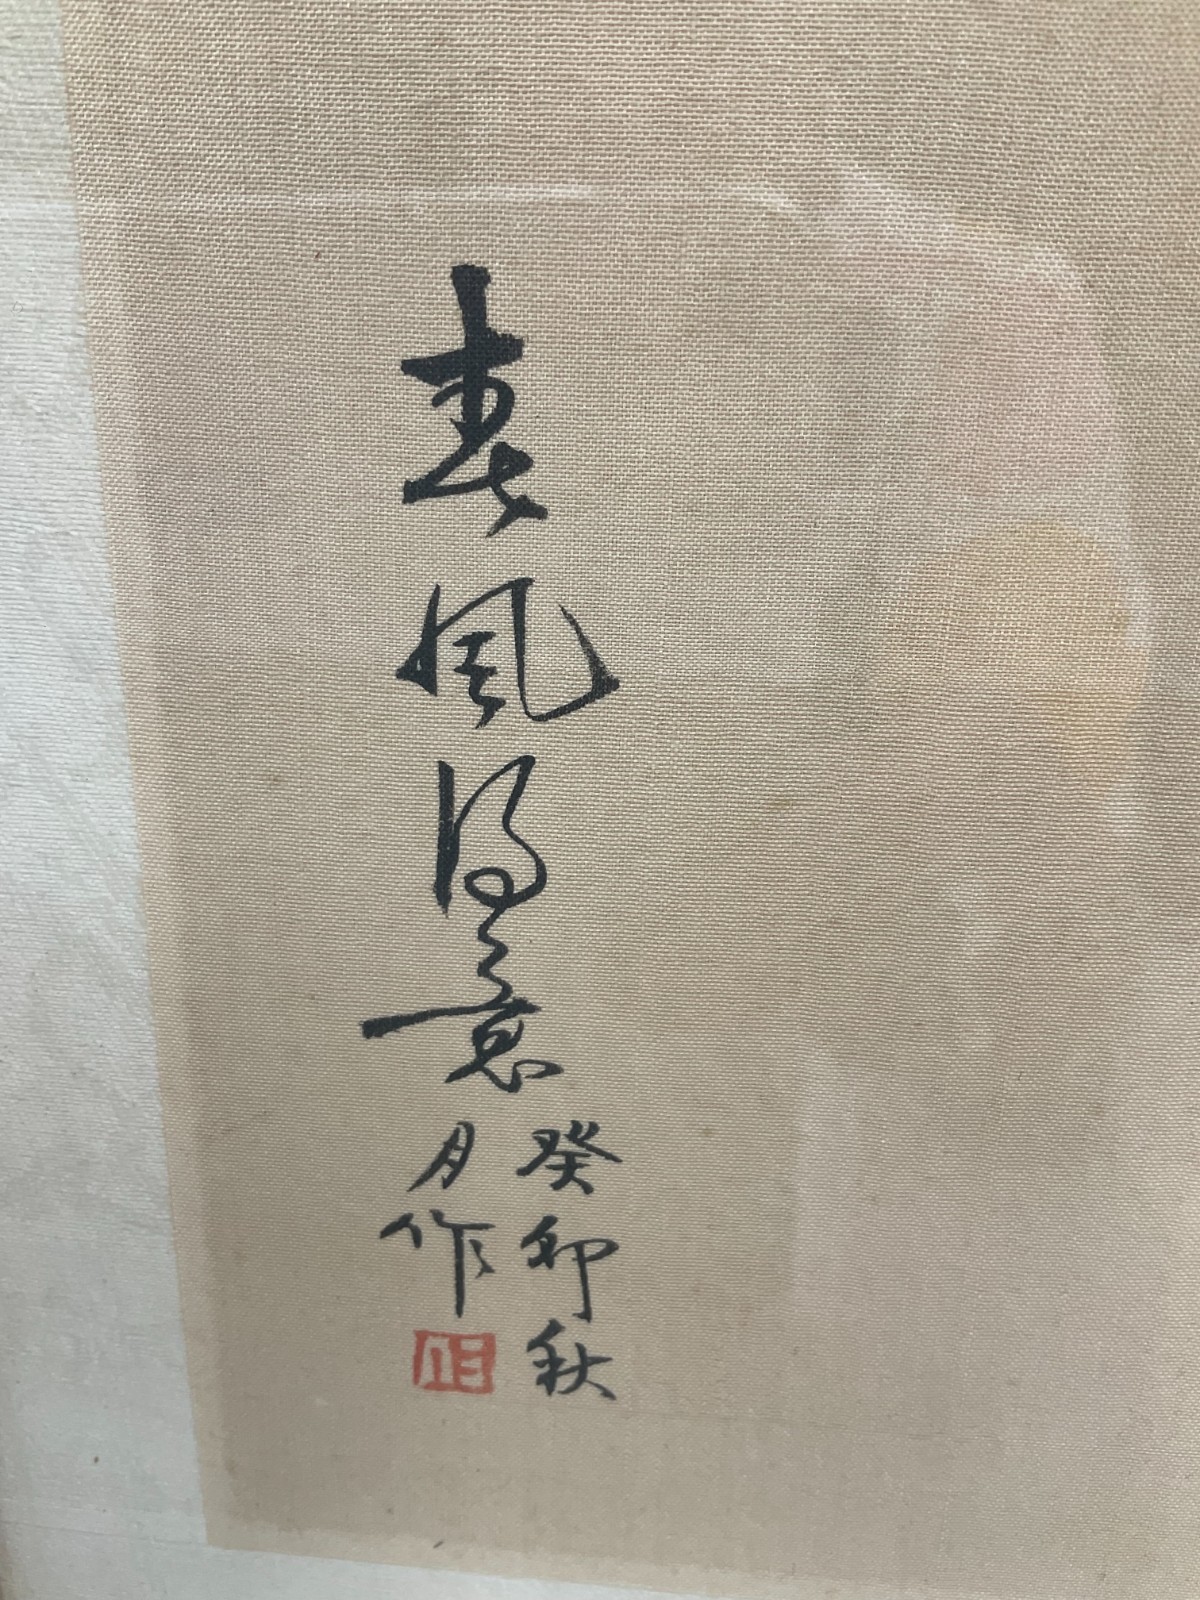 春風得意
癸卯秋
月作